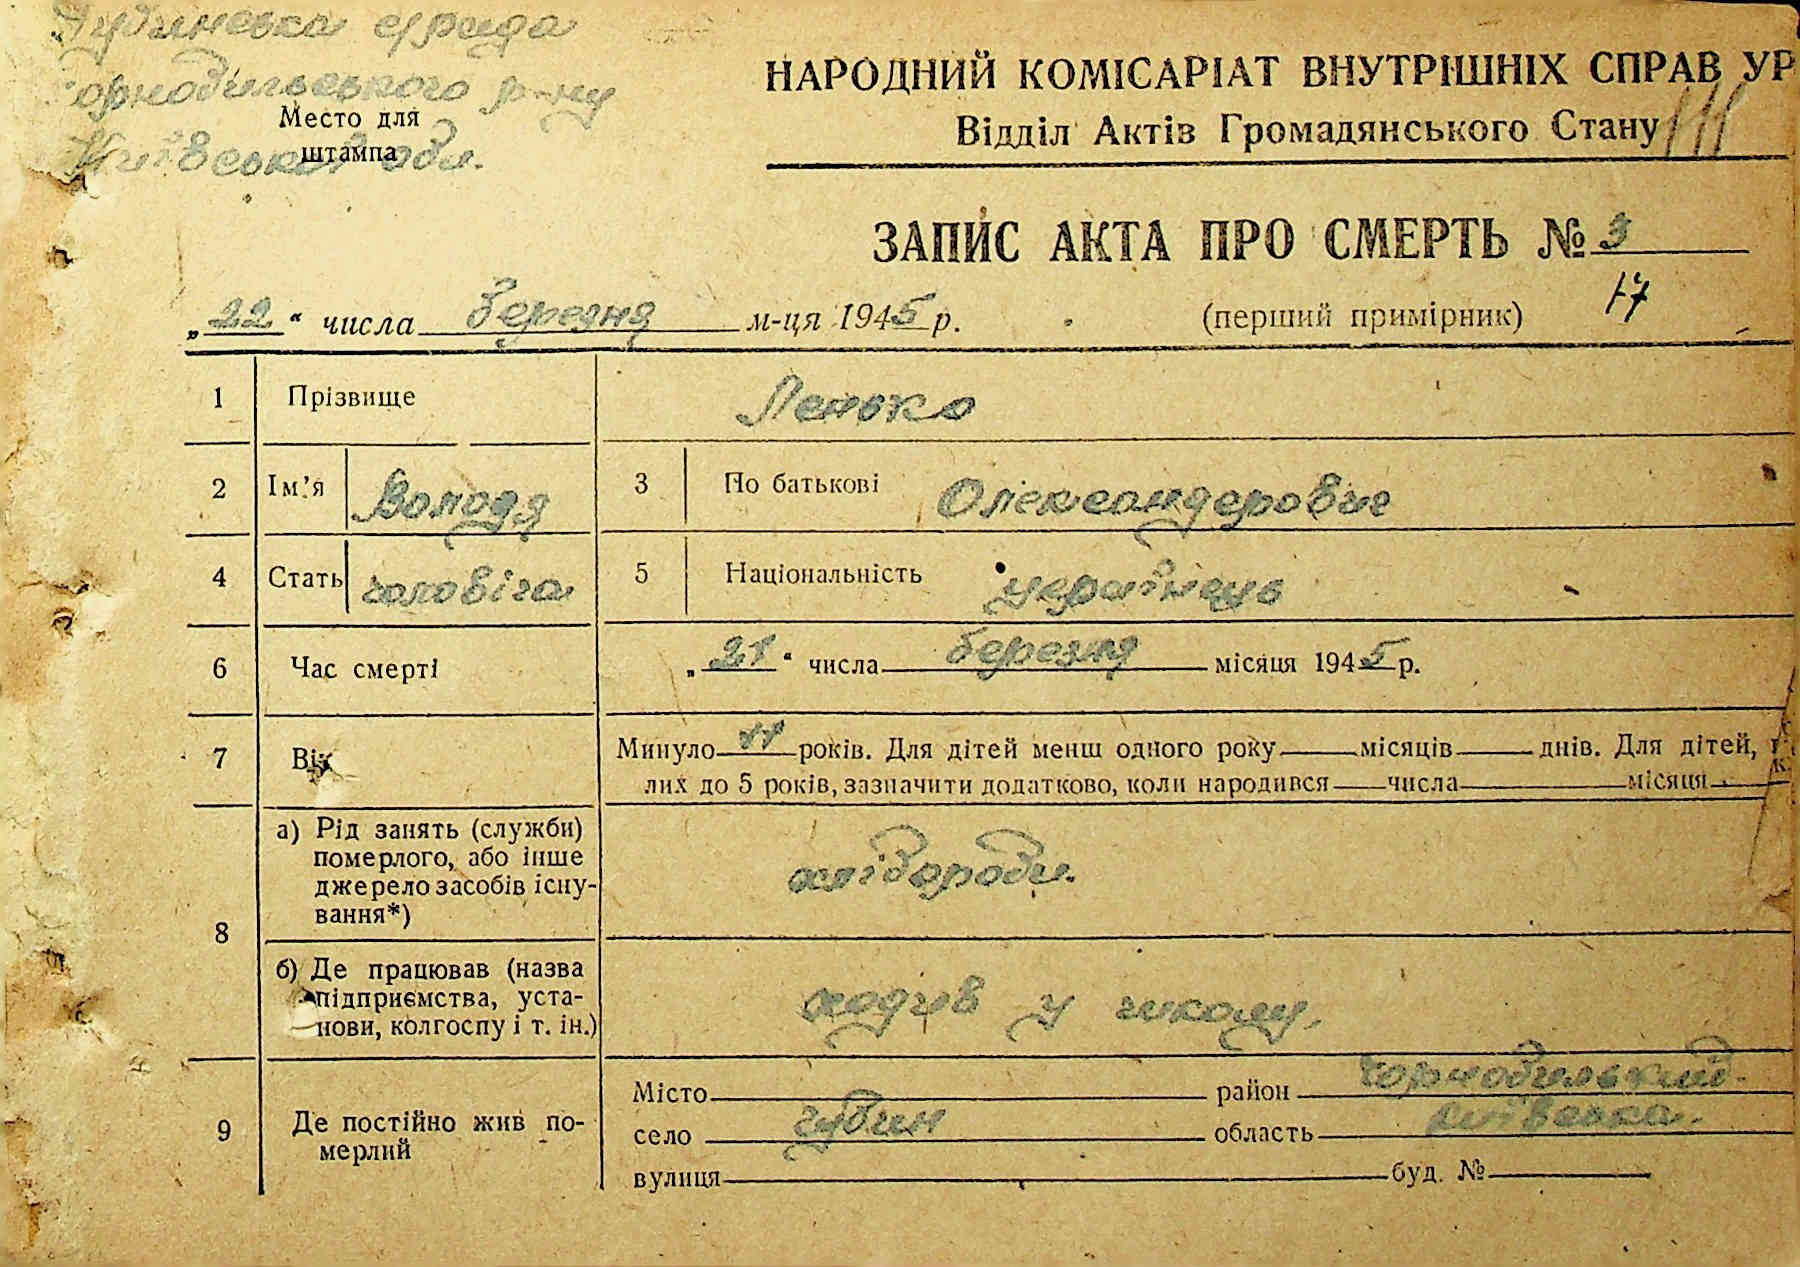 Чубинська с/рада
Чорнобильського р-ну
Київської обл.
Место для
штампа
НАРОДНИЙ КОМІСАРІАТ ВНУТРІШНІХ СПРАВ УР
Відділ Актів Громадянського Стану
ЗАПИС АКТА ПРО СМЕРТЬ № 3
17
„22“ числа березня м-ця 1945 р. (перший примірник)
1 Прізвище Ленько
2 Ім’я Володя 3 По батькові Олександерович
4 Стать чоловіча 5 Національність українець
6 Час смерті „21“ числа березня місяця 1945 р.
7 Вік Минуло 11 років. Для дітей менш одного року місяців днів. Для дітей,
лих до 5 років, зазначити додатково, коли народився числа місяця
8 а) Рід занять (служби)
померлого, або інше
джерело засобів існу-
вання*)
хлібороби.
б) Де працював (назва
підприємства, уста-
нови, колгоспу і т. ін.)
ходив у школу.
9 Де постійно жив по-
мерлий
Місто район Чорнобильский
село Чубин область Київська.
вулиця буд. №